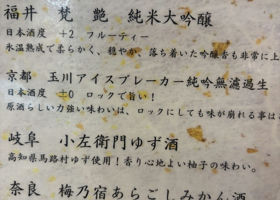 福井　梵　艶　純米大吟醸
日本酒度　+2　フルーティー
氷温熟成で柔らかく、穏やか、落ち着いた吟醸香も非常に上
京都　玉川アイスブレーカー純吟無濾過生
日本酒度　±0　ロックで旨い！
原酒らしい力強い味わいは、ロックにしても味が崩れる事は
岐阜　小左衛門ゆず酒
高知県馬路村ゆず使用！香り心地よい柚子の味わい。
奈良　梅乃宿あらごしみかん酒